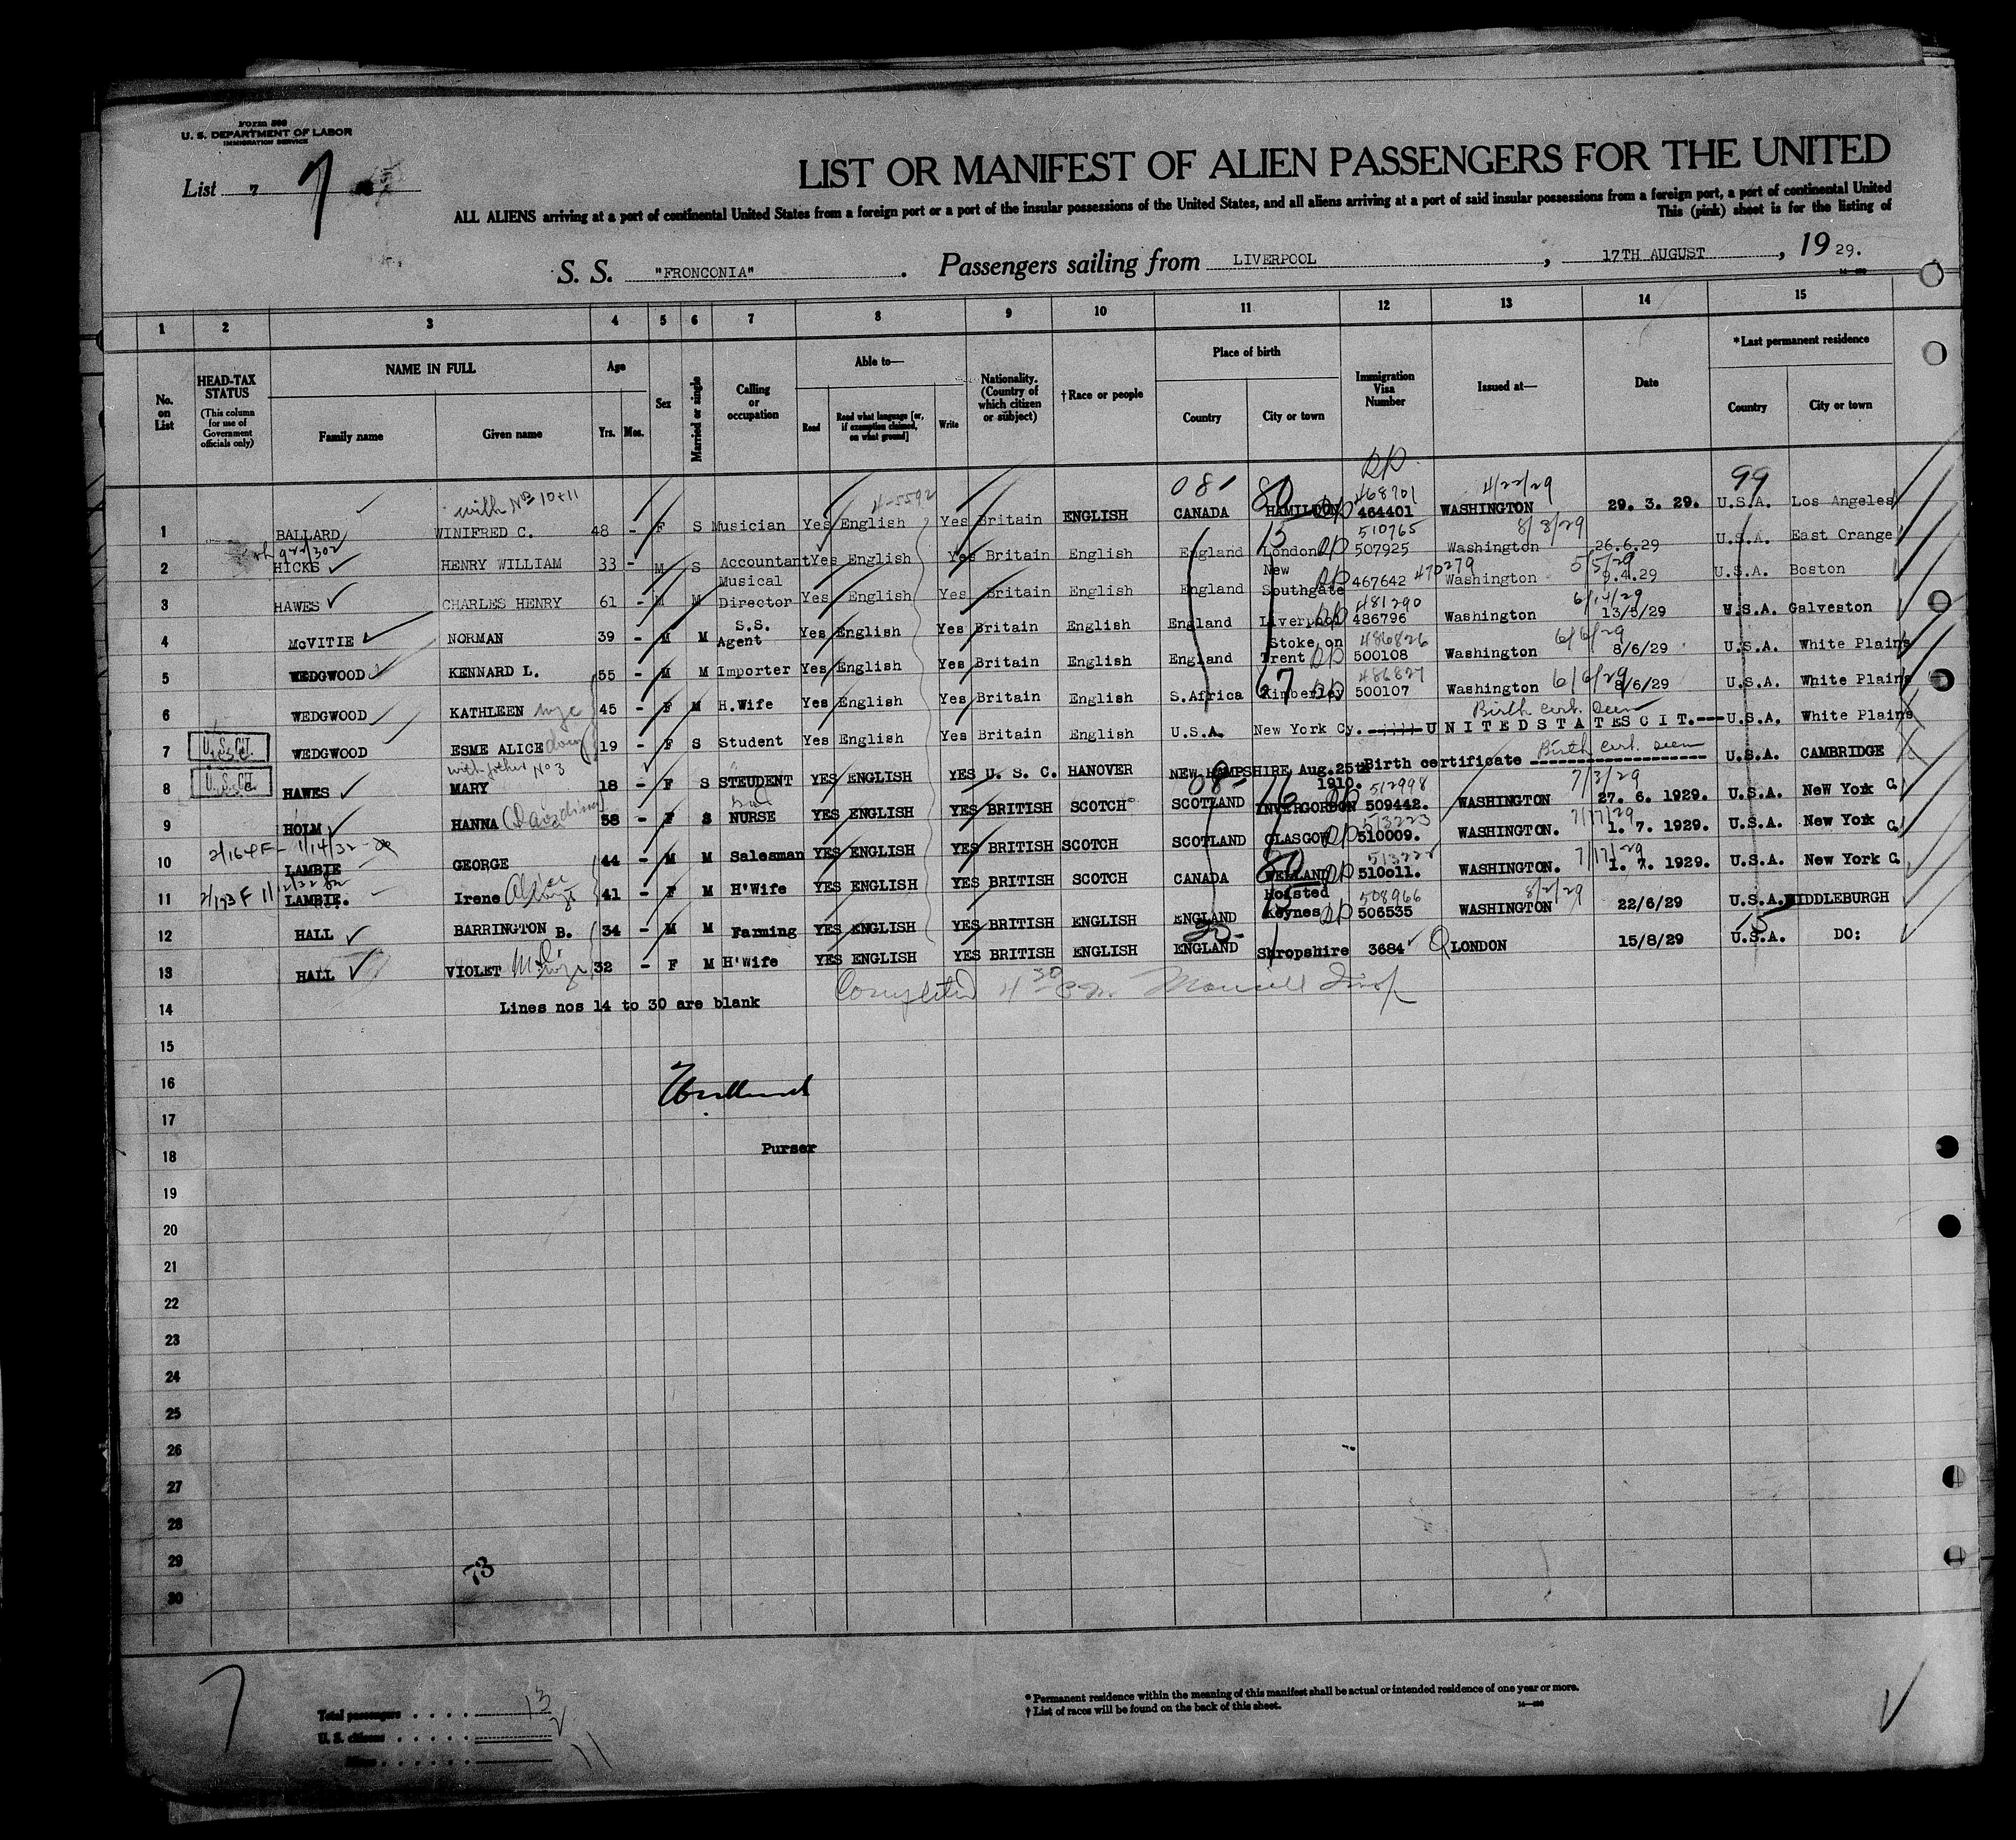 Form 500
U. S. DEPARTMENT OF LABOR
IMMIGRATION SERVICE
List 7 7
LIST OR MANIFEST OF ALIEN PASSENGERS FOR THE UNITED
ALL ALIENS arriving at a port of continental United States from a foreign port or a port of the insular possessions of the United States, and all aliens arriving at a port of said insular possessions from a foreign port, a port of continental United
This (pink) sheet is for the listing of
S. S. "FRONCONIA". Passengers sailing from LIVERPOOL, 17TH AUGUST, 19 29.
1 2 3 4 5 6 7 8 9 10 11 12 13 14 15
No. on List
HEAD-TAX STATUS (This column for use of Government officials only)
NAME IN FULL Family name Given name
Age Yrs. Mos.
Sex
Married or single
Calling or occupation
Able to— Read Read what language [or, if exemption claimed, on what ground] Write
Nationality. (Country of which citizen or subject)
†Race or people
Place of birth Country City or town
Immigration Visa Number
Issued at—
Date
*Last permanent residence Country City or town
with Nos 10+11 4-5592 08 80 468701 4/22/29 99
1 BALLARD WINIFRED C. 48 - F S Musician Yes English Yes Britain ENGLISH CANADA HAMILTON 464401 WASHINGTON 29. 3. 29. U.S.A. Los Angeles
510765 8/8/29
2 HICKS HENRY WILLIAM 33 - M S Accountant Yes English Yes Britain English England London 507925 Washington 26.6.29 U.S.A. East Orange
470279 5/5/29
3 HAWES CHARLES HENRY 61 - M M Musical Director Yes English Yes Britain English England New Southgate 467642 Washington 9.4.29 U.S.A. Boston
481290 6/14/29
4 McVITIE NORMAN 39 - M M S.S. Agent Yes English Yes Britain English England Liverpool 486796 Washington 13/5/29 U.S.A. Galveston
486826 6/6/29
5 WEDGWOOD KENNARD L. 55 - M M Importer Yes English Yes Britain English England Stoke on Trent 500108 Washington 8/6/29 U.S.A. White Plains
486827 6/6/29
6 WEDGWOOD KATHLEEN wife 45 - F M H.Wife Yes English Yes Britain English S.Africa Kimberley 67 500107 Washington 8/6/29 U.S.A. White Plains
Birth cert. seen
7 U.S.CIT. WEDGWOOD ESME ALICE 19 - F S Student Yes English Yes Britain English U.S.A. New York Cy. UNITED STATES CIT.--- U.S.A. White Plains
with father No 3 Birth cert. seen
8 U.S.CIT. HAWES MARY 18 - F S STEUDENT YES ENGLISH YES U. S. C. HANOVER NEW HAMPSHIRE Aug.25th 1910. Birth certificate U.S.A. CAMBRIDGE
08 16 512998 7/3/29
9 HOLM HANNA 58 - F S NURSE YES ENGLISH YES BRITISH SCOTCH SCOTLAND INVERGORDON 509442. WASHINGTON 27. 6. 1929. U.S.A. New York C.
513223 7/17/29
10 LAMBIE GEORGE 44 - M M Salesman YES ENGLISH YES BRITISH SCOTCH SCOTLAND GLASGOW 510009. WASHINGTON. 1. 7. 1929. U.S.A. New York C.
80 7/17/29
11 LAMBIE. Irene Alice wife 41 - F M H'Wife YES ENGLISH YES BRITISH SCOTCH CANADA WELLAND 510011. WASHINGTON. 1. 7. 1929. U.S.A. New York C.
508966 8/2/29
12 HALL BARRINGTON B. 34 - M M Farming YES ENGLISH YES BRITISH ENGLISH ENGLAND Horsted Keynes 506535 WASHINGTON 22/6/29 U.S.A. MIDDLEBURGH
13 HALL VIOLET wife 32 - F M H'Wife YES ENGLISH YES BRITISH ENGLISH ENGLAND Shropshire 3684 LONDON 15/8/29 U.S.A. DO:
14 Lines nos 14 to 30 are blank
Completed 4 30
15
16
17
18 Purser
19
20
21
22
23
24
25
26
27
28
29
30
73
7
Total passengers 13
U. S. citizens 2
Aliens 11
* Permanent residence within the meaning of this manifest shall be actual or intended residence of one year or more.
† List of races will be found on the back of this sheet.